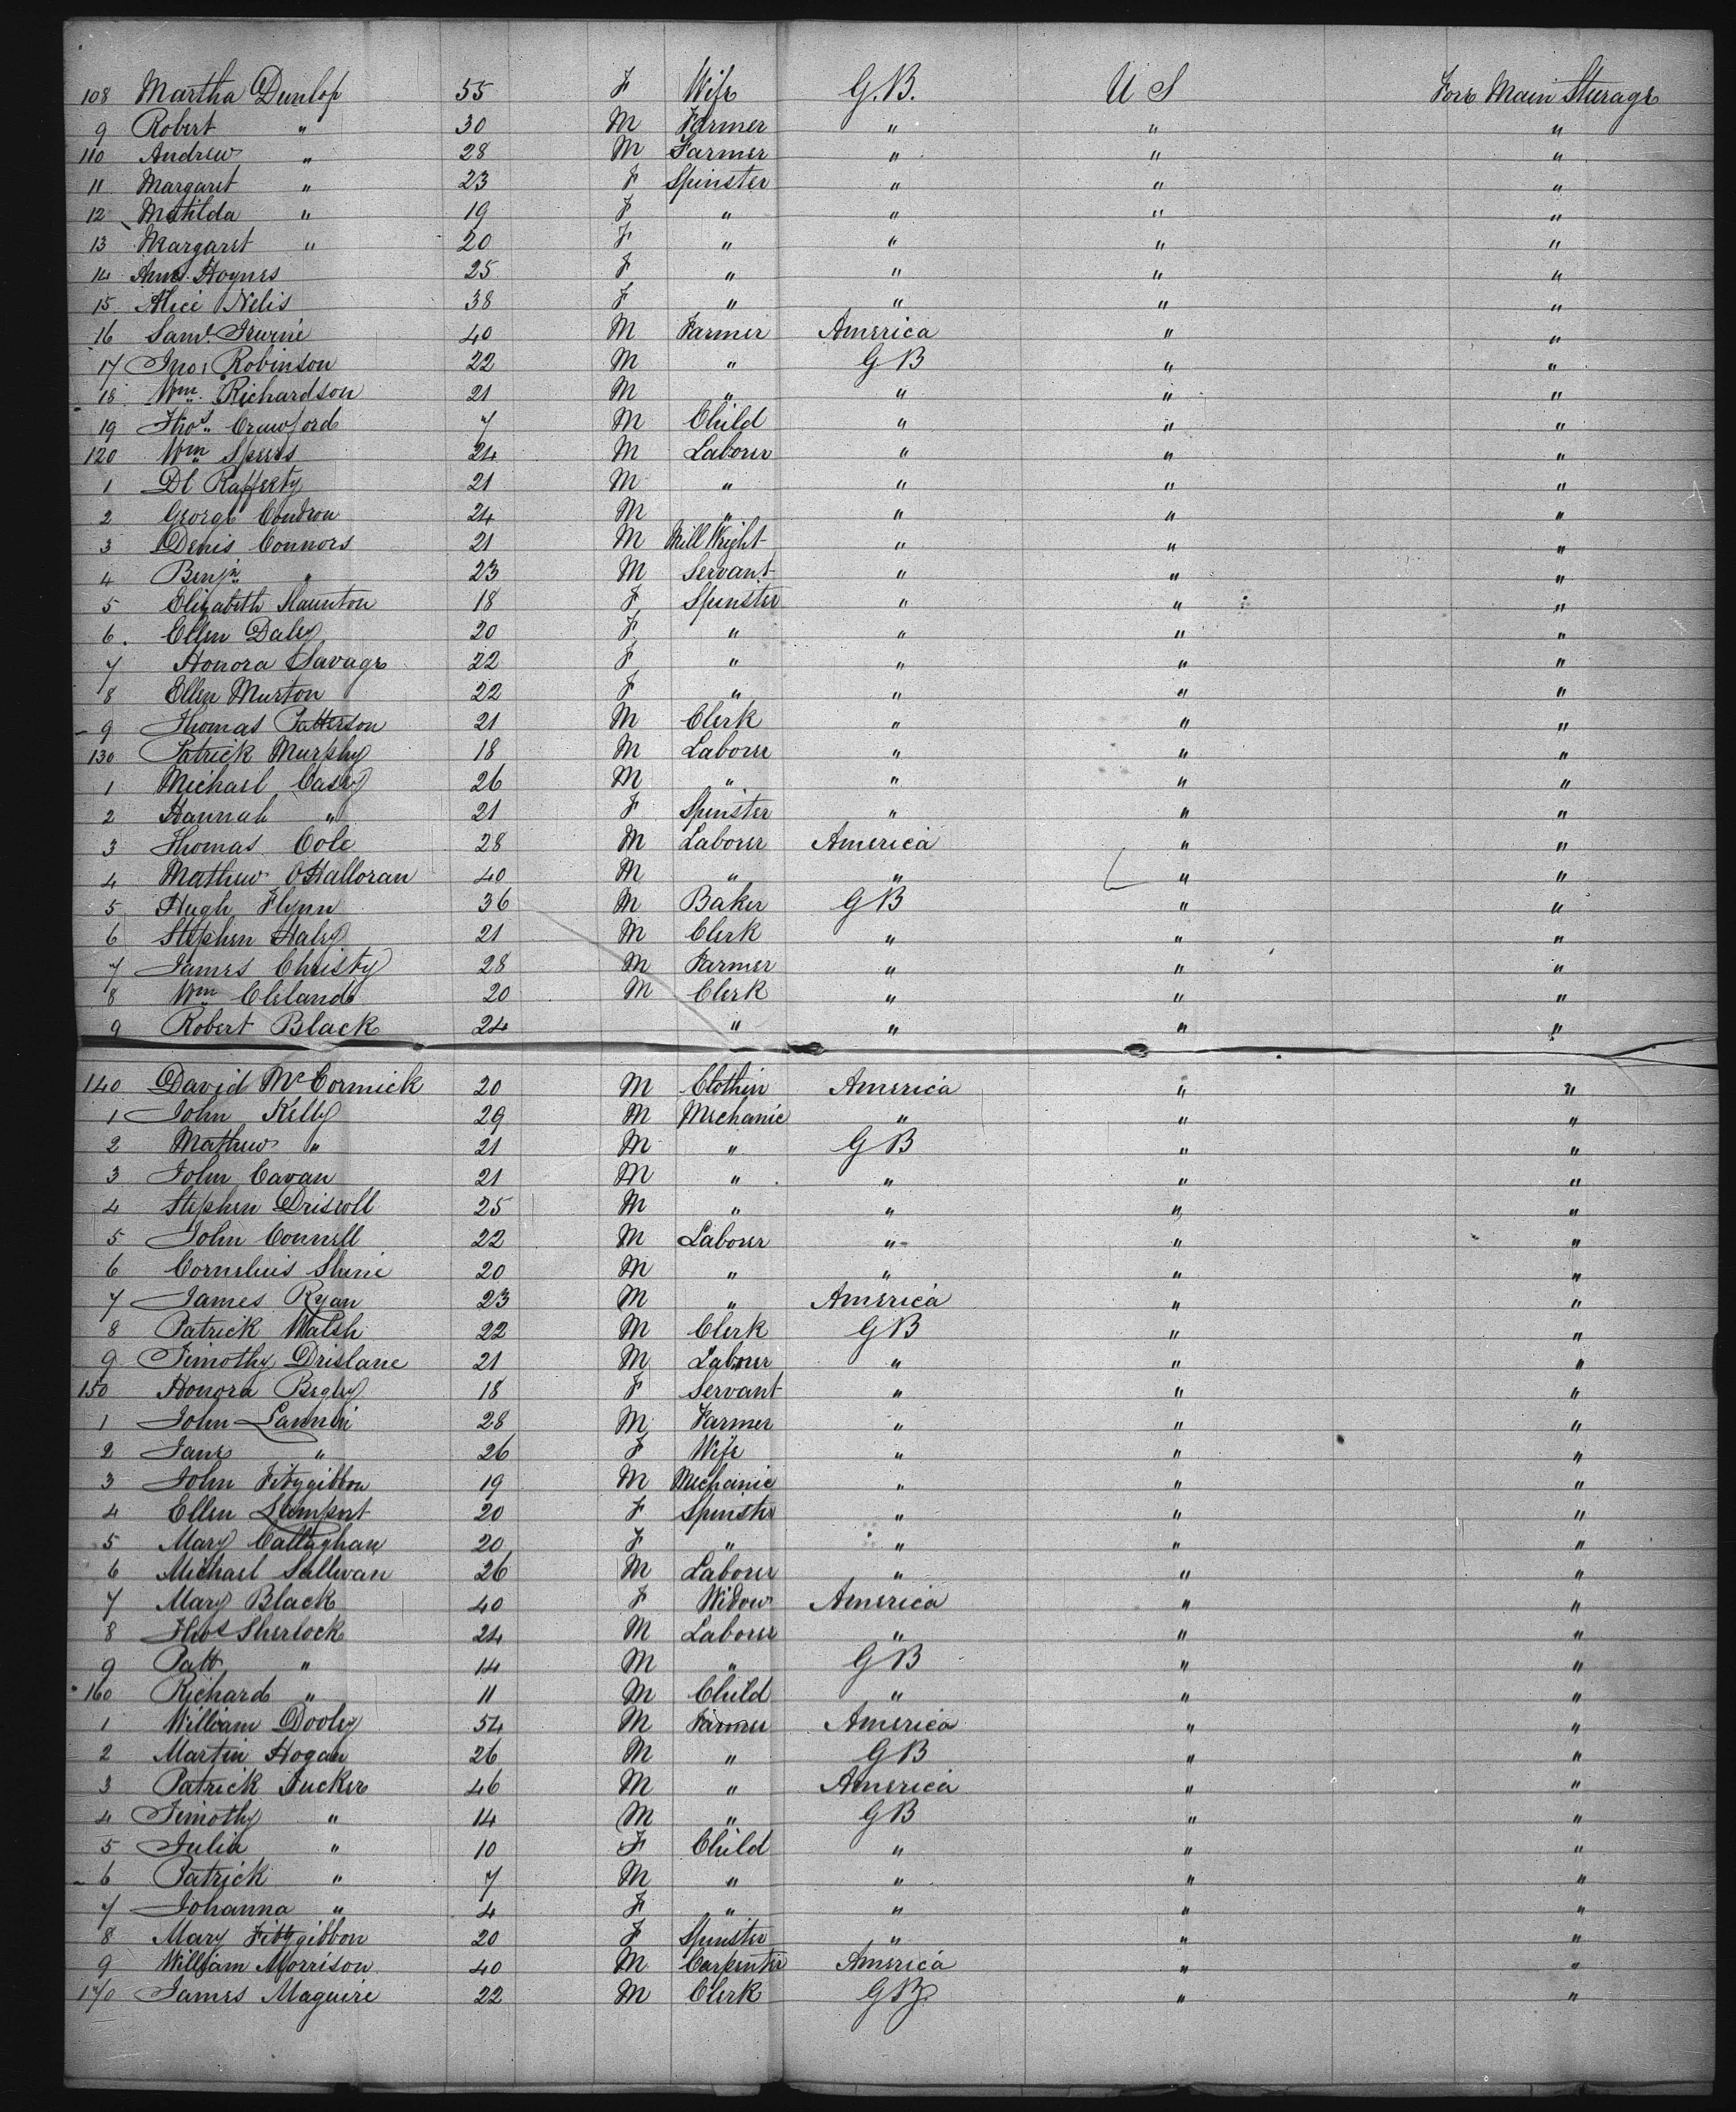 108 Martha Dunlop 55 F Wife G.B. U S Fore Main Steerage
9 Robert " 30 M Farmer " " "
110 Andrew " 28 M Farmer " " "
11 Margaret " 23 F Spinster " " "
12 Matilda " 19 F " " " "
13 Margaret " 20 F " " " "
14 Ann Hoynes 25 F " " " "
15 Alice Nelis 38 F " " " "
16 Saml. Irwine 40 M Farmer America " "
17 Jno: Robinson 22 M " GB " "
18 Wm. Richardson 21 M " " " "
19 Thos. Crawford 7 M Child " " "
120 Wm Speers 24 M Laborer " " "
1 Dl Rafferty 21 M " " " "
2 George Condron 24 M " " " "
3 Denis Connors 21 M Mill Wright " " "
4 Benjn " 23 M Servant " " "
5 Elizabeth Staunton 18 F Spinster " " "
6 Ellen Daley 20 F " " " "
7 Honora Savage 22 F " " " "
8 Ellen Murton 22 F " " " "
9 Thomas Patterson 21 M Clerk " " "
130 Patrick Murphy 18 M Laborer " " "
1 Michael Casey 26 M " " " "
2 Hannah " 21 F Spinster " " "
3 Thomas Cole 28 M Laborer America " "
4 Mathew OHalloran 40 M " " " "
5 Hugh Flynn 36 M Baker GB " "
6 Stephen Haley 21 M Clerk " " "
7 James Christy 28 M Farmer " " "
8 Wm Cleland 20 M Clerk " " "
9 Robert Black 24 " " " "
140 David McCormick 20 M Clothier America " "
1 John Kelly 29 M Mechanic " " "
2 Mathew " 21 M " GB " "
3 John Cavan 21 M " " " "
4 Stephen Driscoll 25 M " " " "
5 John Connell 22 M Laborer " " "
6 Cornelius Shine 20 M " " " "
7 James Ryan 23 M " America " "
8 Patrick Walsh 22 M Clerk GB " "
9 Timothy Drislane 21 M Laborer " " "
150 Honora Begley 18 F Servant " " "
1 John Lannin 28 M Farmer " " "
2 Jane " 26 F Wife " " "
3 John Fitzgibbon 19 M Mechanic " " "
4 Ellen Lamport 20 F Spinster " " "
5 Mary Callaghan 20 F " " " "
6 Michael Sullivan 26 M Laborer " " "
7 Mary Black 40 F Widow America " "
8 Thos Sherlock 24 M Laborer " " "
9 Patt " 14 M " GB " "
160 Richard " 11 M Child " " "
1 William Dooley 54 M Farmer America " "
2 Martin Hogan 26 M " GB " "
3 Patrick Tucker 46 M " America " "
4 Timothy " 14 M " GB " "
5 Julia " 10 F Child " " "
6 Patrick " 7 M " " " "
7 Johanna " 4 F " " " "
8 Mary Fitzgibbon 20 F Spinster " " "
9 William Morrison 40 M Carpenter America " "
170 James Maguire 22 M Clerk GB " "